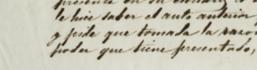 presente en su
le hice saber el auto anterior
y pide que tomada la razon
poder que tiene presentado,